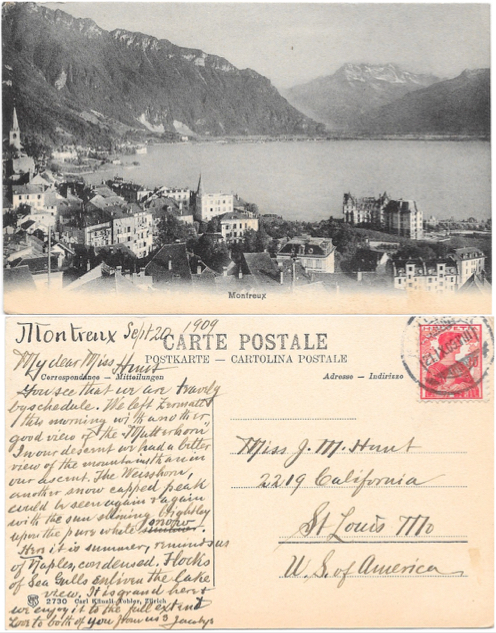 Montreux
Montreux Sept 20 1909
CARTE POSTALE
POSTKARTE - CARTOLINA POSTALE
My dear Miss Hunt
Correspondance - Mitteilungen
Adresse - Indirizzo
You see that we are
by schedule. We left Zermatt
this morning with another
good view of the "Matterhorn"
In our descent we had a better
view of the mountains than in
our ascent. The Weisshorn,
another snow capped peak
could be seen again & again
with the sun shining brightly
upon the pure white snow
Here it is summer, reminds us
of Naples, condensed. Flocks
of Sea Gulls enliven the lake
view. It is grand here &
we enjoy it to the full extent
Love to both of you from us 3
Miss J. M. Hunt
2219 California
St Louis Mo
U. S. of America
2730 Carl Künzli-Tobler, Zürich